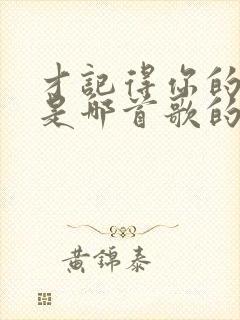 才記得你的
是那首歌的
黃錦泰